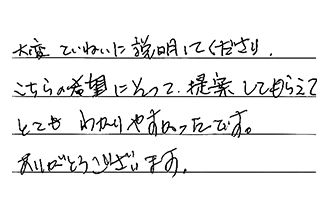 大変 ていねいに 説明してくださり、
こちらの希望にそって、提案してもらえて
とても わかりやすかったです。
ありがとうございます。